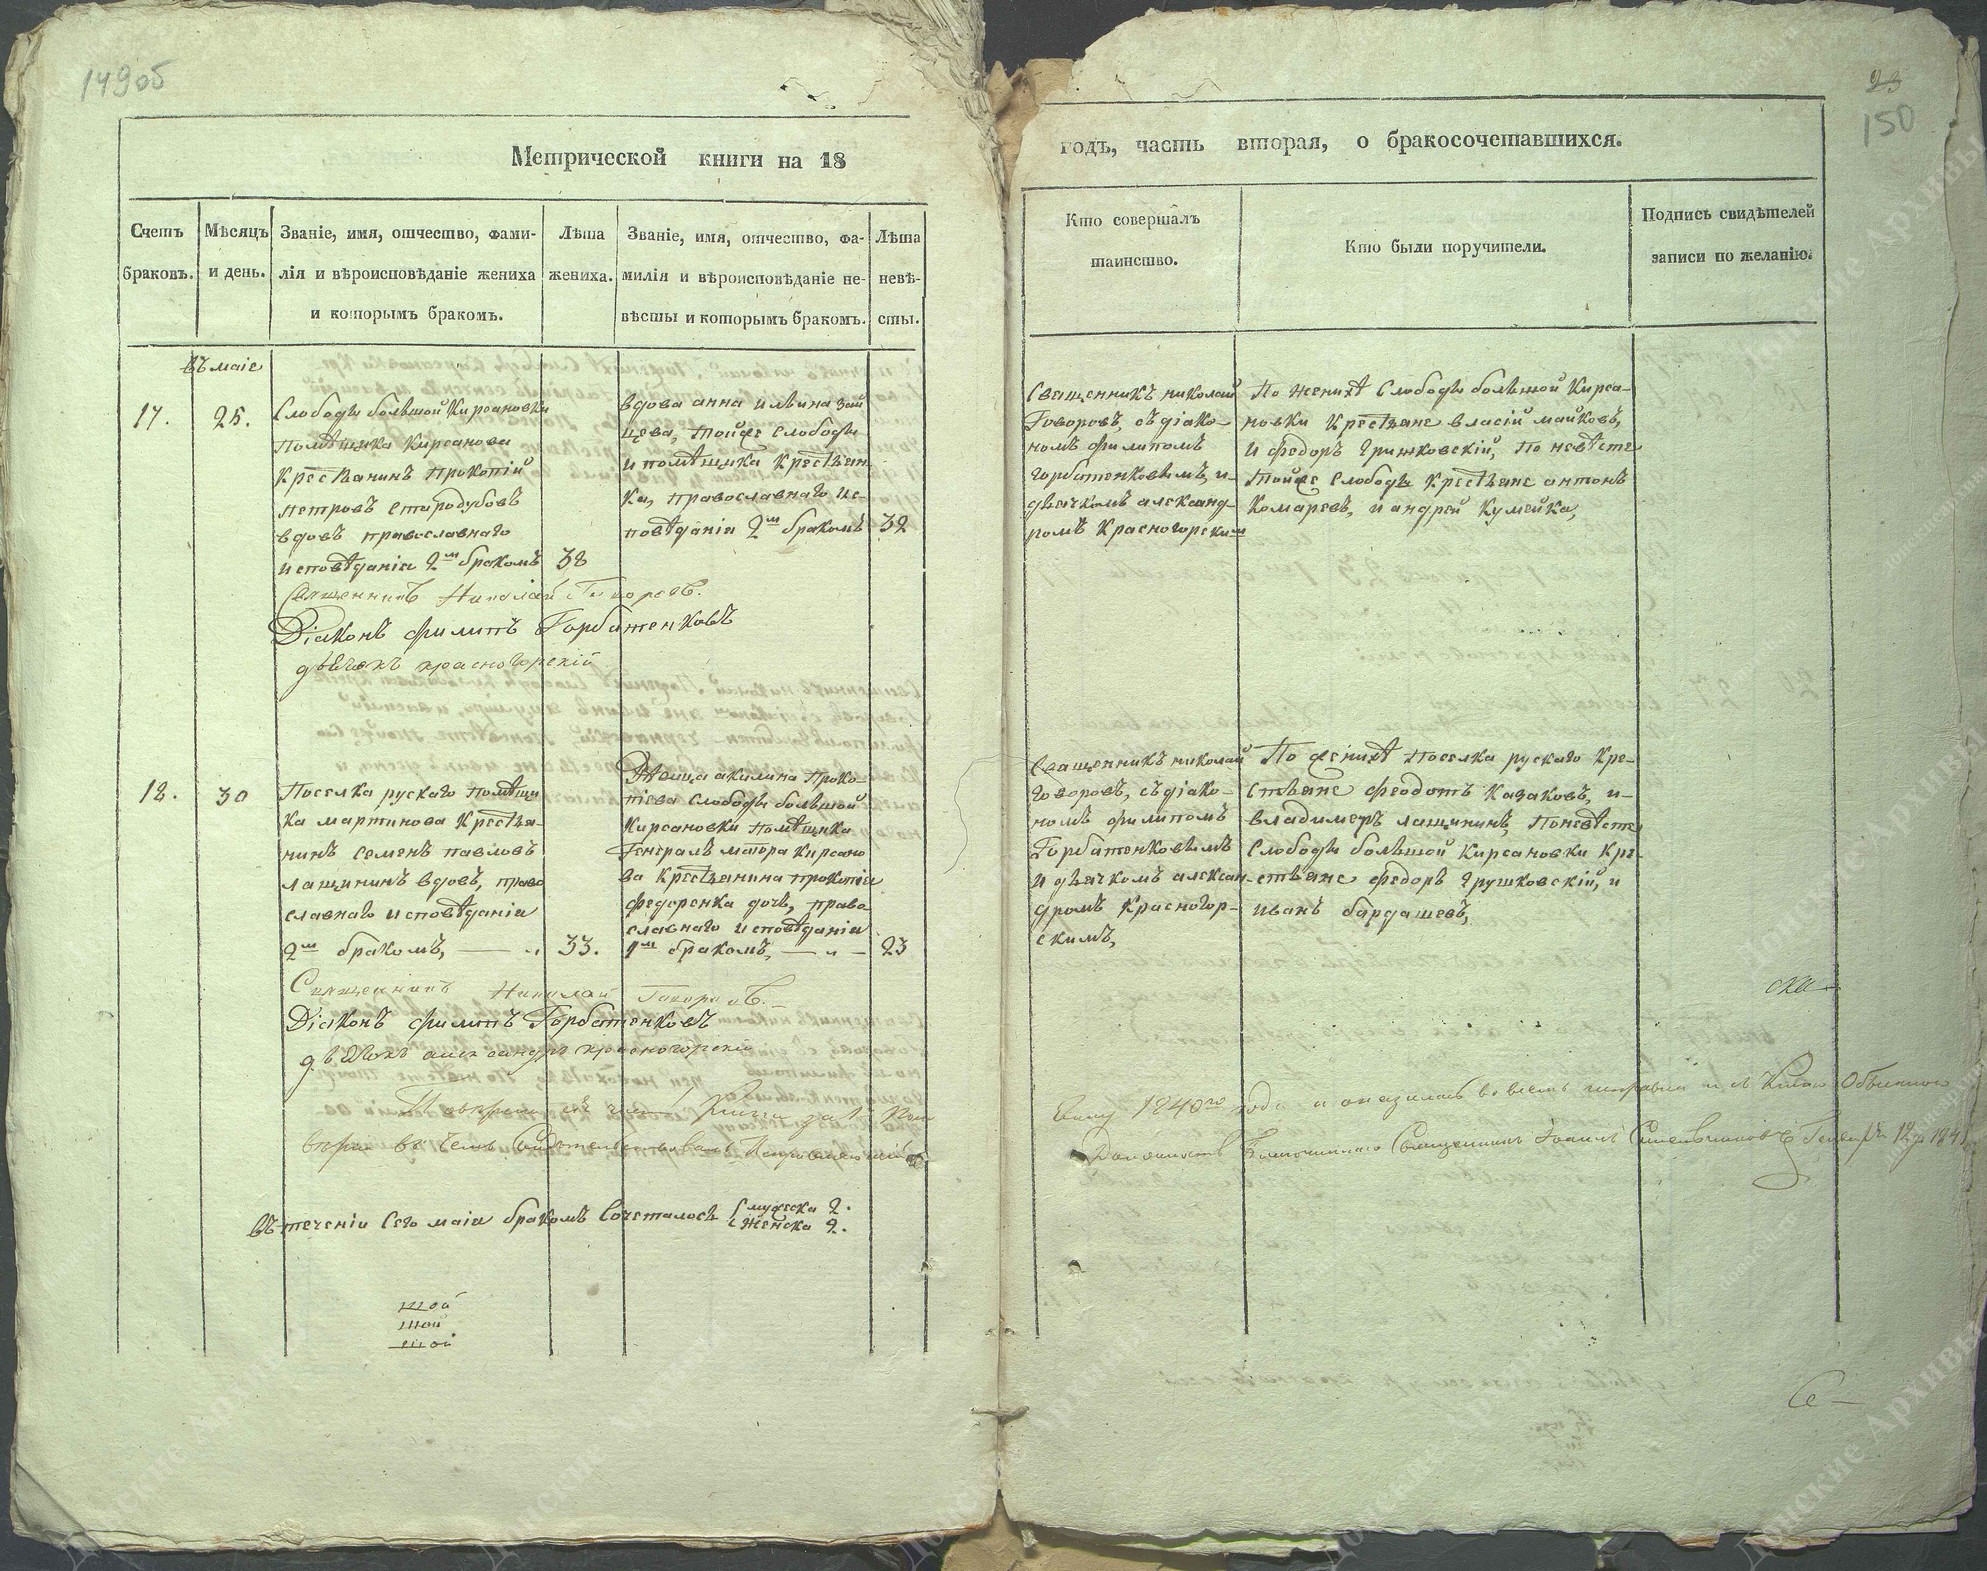 149об
23
150
Метрической книги на 18
годъ, часть вторая, о бракосочетавшихся.
Счетъ браковъ.
Мѣсяцъ и день.
Званіе, имя, отчество, фами-
лія и вѣроисповѣданіе жениха
и которымъ бракомъ.
Лѣта
жениха.
Званіе, имя, отчество, фа-
милія и вѣроисповѣданіе не-
вѣсты и которымъ бракомъ.
Лѣта
невѣ-
сты.
Кто совершалъ
таинство.
Кто были поручители.
Подпись свидѣтелей
записи по желанію.
въ маіе
17.
25.
Слободы большой Кирсановки
Помѣщика Кирсанова
Крестьянинъ Прокопій
петровъ Стародубовъ
вдовъ православнаго
исповѣданія 2м бракомъ
38
вдова анна ильина зай
цева, тойже слободы
и помѣщика Крестьян
ка, православнаго ис-
повѣданія 2м бракомъ
32
Священникъ николай
Говоровъ, съ діако-
номъ филипомъ
горбатенковымъ, и-
дьячкомъ александ-
ромъ Красногорским
По женихѣ Слободы большой Кирса-
новки Крестьяне власій майковъ,
и федоръ Грушковскій, по невѣсте
тойже слободы Крестьяне антонъ
Комаревъ, и андрей Кумейка,
Священникъ Николай Говоровъ.
Діяконъ филипъ Горбатенковъ
дьячокъ красногорскій
18.
30
Поселка рускаго помѣщи
ка мартинова Крестья-
нинъ семенъ павловъ
лащининъ вдовъ, право
славнаго исповѣданія
2м бракомъ, — „
33.
Дѣвица акилина Проко-
піева слободы большой
Кирсановки помѣщика
Генералъ маіора Кирсано
ва Крестьянина прокопія
федоренка дочь, право
славнаго исповѣданія
1м бракомъ, — „ —
23
Священникъ николай
Говоровъ, съ діако-
номъ филипомъ
Горбатенковымъ
и дьячкомъ алексан-
дромъ Красногор-
скимъ,
По женихѣ поселка рускаго Кре-
стьяне феодотъ Казаковъ, и-
владимеръ лащининъ, по невѣсте
слободы большой Кирсановки Кре-
стьяне федоръ Грушковскій, и
иванъ бардашевъ,
Священникъ Николай Говоровъ.
Діяконъ филипъ Горбатенковъ
дьячокъ александръ красногорскій
1840го года и оказалась во всемъ
Священникъ 1841
въ теченіи сего маія бракомъ сочеталось
мужеска 2.
женска 2.
шой
шой
шой